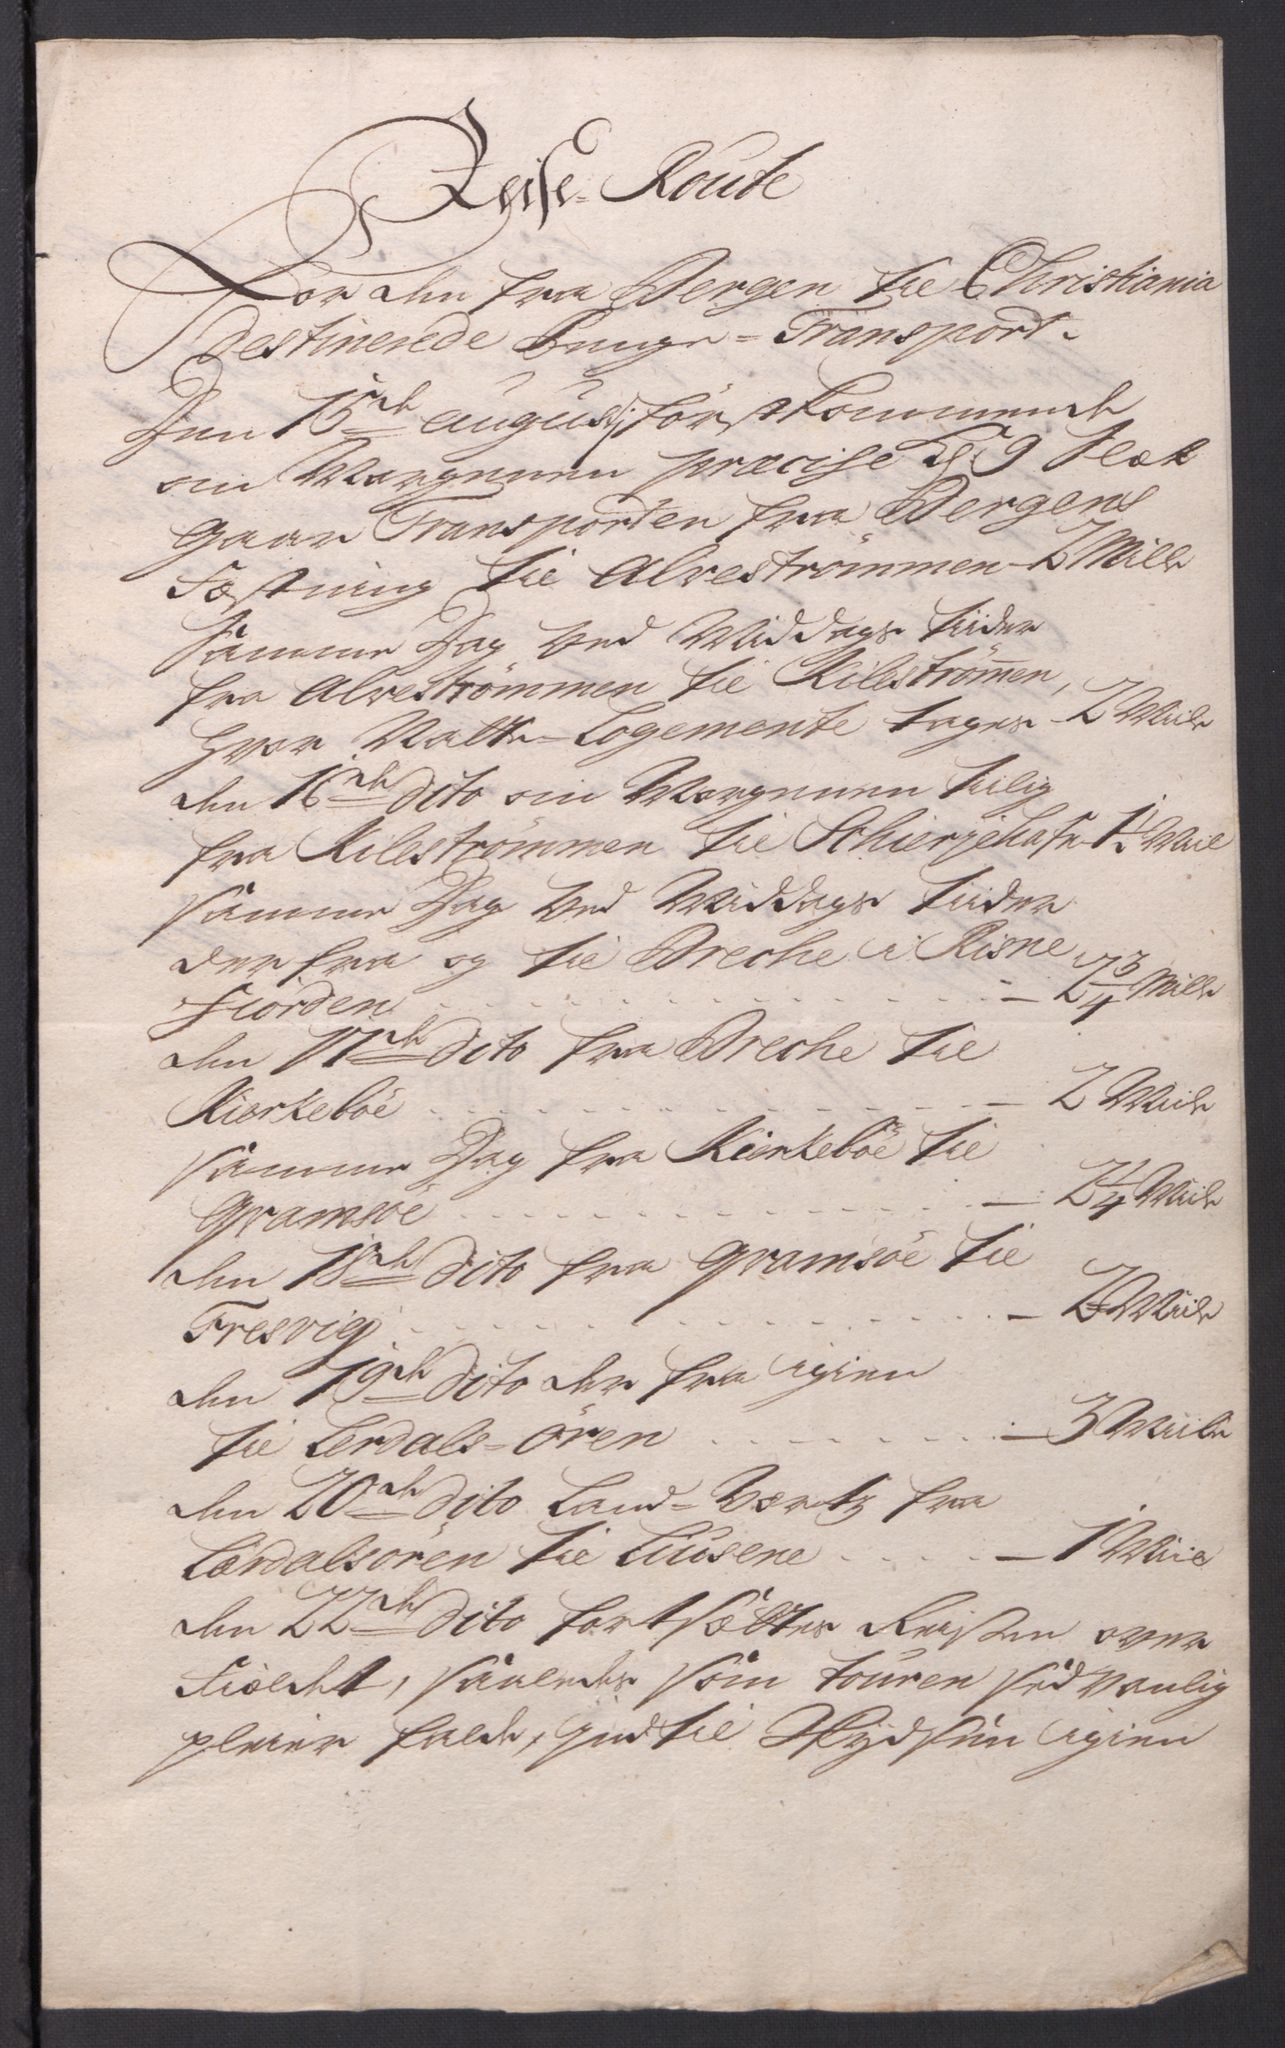 Reise-Route
For den fra Bergen til Christiania
destinerede Penge-Transport.
Den 15de augusti førstkommende
om Morgenen præcise Kl 9 slæt
gaar Transporten fra Bergens
Fæstning til Alvestrømmen - 2 Miile
Samme Dag ved Middags tiider
fra Alvestrømmen til Kilestrømen,
hvor Natte-Logemente tages - 2 Miile
den 16de dito om Morgenen tilig
fra Kilestrømmen til Schierjehafn 1½ Miil
samme Dag ved Middags tiider
derfra og til Breche i Risne
Fiorden - 2¾ Miile
den 17de dito fra Breche til
Kierkeboe - 2 Miile
samme Dag fra Kierkeböe til
Gramsöe - 2¼ Miile
den 18de dito fra Gramsöe til
Fresvig - 2 Miile
den 19de dito der fra igien
til Lerdals-Ören - 3 Miile
den 20de dito Land-Værtz fra
Lærdalsören til Liusene - 1 Miil
den 22de dito fortsættes Reisen over
Fieldet, saaledes som touren sædvanlig
pleier falde, ind til Skydsen igien